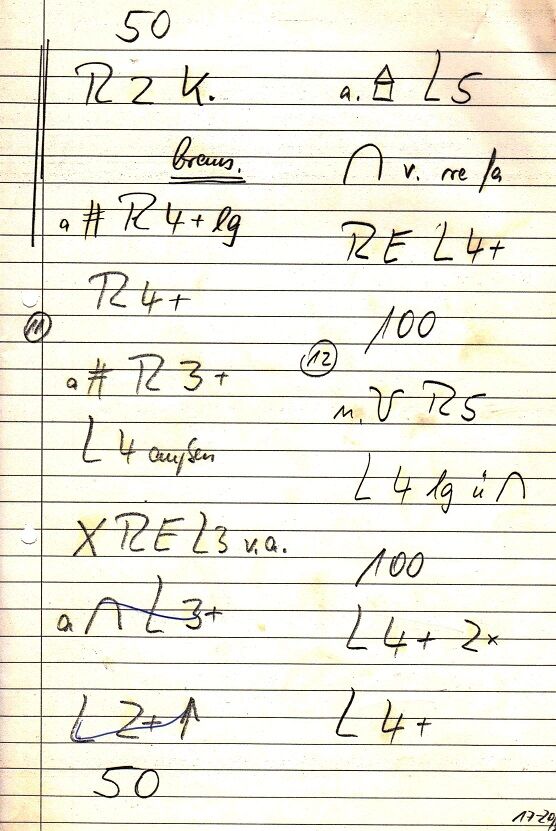 50
R 2 K.
brems.
a # R 4 + lg
R 4 +
11
a # R 3 +
L 4 außen
X R E L 3 v.a.
a ∩ L 3 +
L 2 + ↑
50
a. L 5
∩ v.
R E L 4 +
100
12
n. V R 5
L 4 lg ü ∩
100
L 4 + 2x
L 4 +